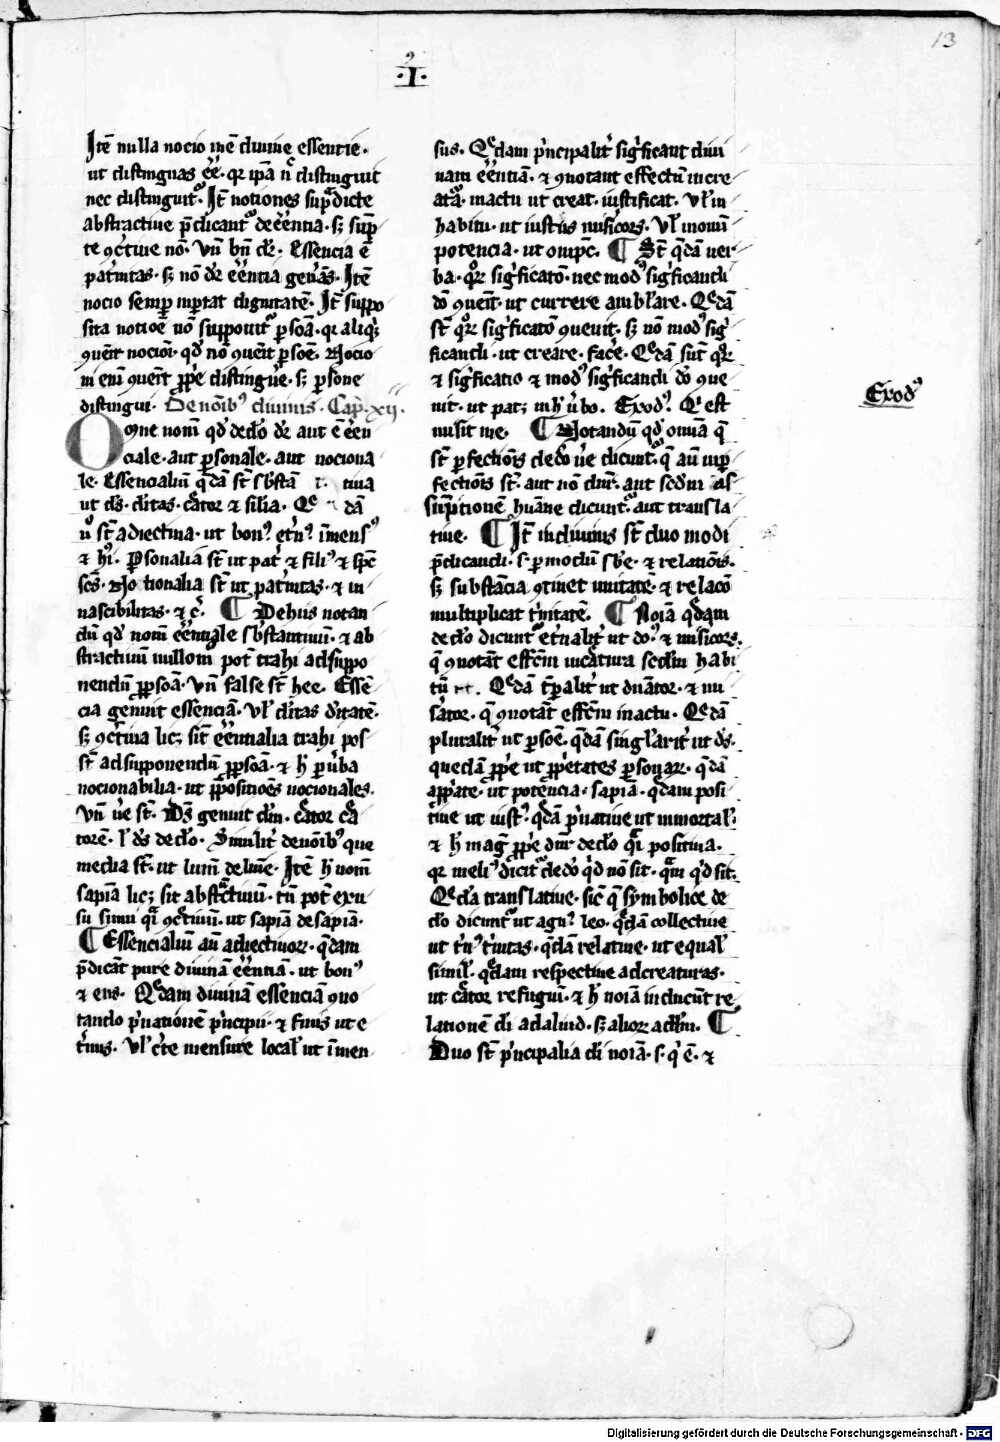 13
·I·
Itē nulla nocio inē diuine essentie·
ut distinguas eē· qr ipā n̄ distinguit
nec distinguit᷒· Itē notiones supͣdicte
abstractiue p̄dicant᷒ de eēntia· sꝫ supͣ
te ꝯcͤtiue nō· Vn̄ bn̄ dr̄· Essencia ē
pat̄nitas· sꝫ nō dr̄ eēntia genͣās· Itē
nocio semꝑ īportat dignitatē· Itē suppo
sita notiōe nō supponit᷒ ꝑsōa· qr aliqͥs
ꝯuēit nocioī· qd̓ nō ꝯuēit ꝑsōe· Nocio
ni enī ꝯuēit ꝓpͥe distinguͤe· sꝫ ꝑsone
distingui· De noīb᷒ diuinis· Cap̄· xij·
Omne nomē qd̓ de deo dr̄ aut ē eēn
ciale· aut ꝑsonale· aut nociona
le· Essencialiū qͣdā st̄ sb̓stā tiua
ut ds̄· dītas· cͣator ⁊ silia· Qͤ dā
ū st̄ adiectiua· ut bon᷒· et̓n᷒· īmens᷒
⁊ hͥ· Ꝑsonalia st̄ ut pat̓ ⁊ fili᷒ ⁊ spc̄
scs̄· No tionalia st̄ ut pat̓nitas· ⁊ in
nascibilitas· ⁊ cͤ· ¶ De hiis notan
dū qd̓ nomē eēntiale sb̓stantiuū· ⁊ ab
stractiuū nullom̄ pot̄ trahi ad suppo
nendū ꝓ ꝑsōa· Vn̄ false st̄ hee· Essē
cia genuit essenciā· Vl̓ dītas d̓itatē·
sꝫ ꝯcͤtiua licꝫ sīt eēntialia trahi pos
st̄ ad supponendū ꝓ ꝑsōa· ⁊ h̓ ꝑ ūba
nocionabilia· ut ꝓpositiōes nocionales·
Vn̄ ūe st̄· Ds̄ genuit dm̄· cͣator cͣa
torē· l̓ ds̄ de deo· Similit̓ de noīb᷒ que
media st̄· ut lumē de luīe· Itē h̓ nomē
sapīa licꝫ sit abstͣctiuū· tn̄ pot̄ ex u
su sumi qͣi ꝯcͤtiuū· ut sapīa de sapīa·
¶ Essencialiū aū adiectiuoꝝ· qͤdam
p̄dicāt pure diuinā eēntiā· ut bon᷒
⁊ ens· Qͤdam diuinā essenciā ꝯno
tando pͥuationē pͥncipii· ⁊ finis ut e
t̓nus· Vl̓ cͤte mensure local̓ ut īmen
sus· Qͤdam pͥncipalit̓ sigͥficant diui
nam eēntiā· ⁊ ꝯnotant effectū in cre
atͣa· in actu ut creat· iustificat· Vl̓ in
habitu· ut iustus misͥcors· Vl̓ in oīni
potencia· ut oīpc̄· ¶ St̄ qͤdā uer
ba· qͦꝝ sigͥficatō· nec mod᷒ sigͥficandi
dō ꝯuēit· ut currere ambl̓are· Qͤdā
st̄ qͦꝝ sigͥficatō ꝯuenit· sꝫ nō mod᷒ sigͥ
ficandi· ut creare· facͤe· Qͤdā sūt qͦꝝ
⁊ sigͥficatio ⁊ mod᷒ sigͥficandi dō ꝯue
nit· ut patꝫ in h̓ ūbo· Exod᷒· Qͥ est
misit me· ¶ Notandū qd̓ omīa qͤ
st̄ ꝑfectiōis de dō ūe dicunt᷒· qͤ aū inꝑ
fectiōis st̄· aut nō dnr̄· aut scd̓m as
sūptionē hūane dicunt᷒ aut transla
tiue· ¶ Itē in diuinis st̄ duo modi
p̄dicandi· s· ꝑ modū sb̄e· ⁊ relatiōis·
sꝫ substācia ꝯtinet unitatē· ⁊ relacō
multiplicat tͥnitatē· ¶ Noīa qͤdam
de deo dicunt᷒ et̓nalit̓ ut do᷒· ⁊ misͥcors·
qͤ ꝯnotāt effcͤm in cͣatura scd̓m habi
tū · Qͤdā tꝑalit̓ ut dn̄ator· ⁊ mi
sͣator· qͤ ꝯnotāt effcͤm in actu· Qͤdā
pluralit̓ ut ꝑsōe· qͤdā singl̓arit̓ ut ds̄·
quedā ꝓpͥe ut ꝓpͥetates ꝑsonaꝝ· qͤdā
apꝓpͥate· ut potēcia· sapīa· qͤdam posi
tiue ut iust᷒· qͤdā pͥuatiue ut inmortal̓·
⁊ h̓ mag̓ ꝓpͥe dnr̄ de deo qͣ positiua·
qr meli᷒ dicit᷒ de dō qͥd nō sit· qͣm qͥd sit·
Qͤdā translatiue· sic̄ qͤ symbolice de
deo dicunt᷒ ut agn᷒ leo· qͤdā collectiue
ut tͥn᷒ tͥnitas· qͤdā relatiue· ut equal̓
simil̓· qͤdam respectiue ad creaturas·
ut cͣator refugiū· ⁊ h̓ noīa inducūt re
lationē dī ad aliud· sꝫ alioꝝ ad dm̄· ¶
Duo st̄ pͥncipalia dī noīa· s· qͥ ē· ⁊
Exod᷒
Digitalisierung gefördert durch die Deutsche Forschungsgemeinschaft - DFG